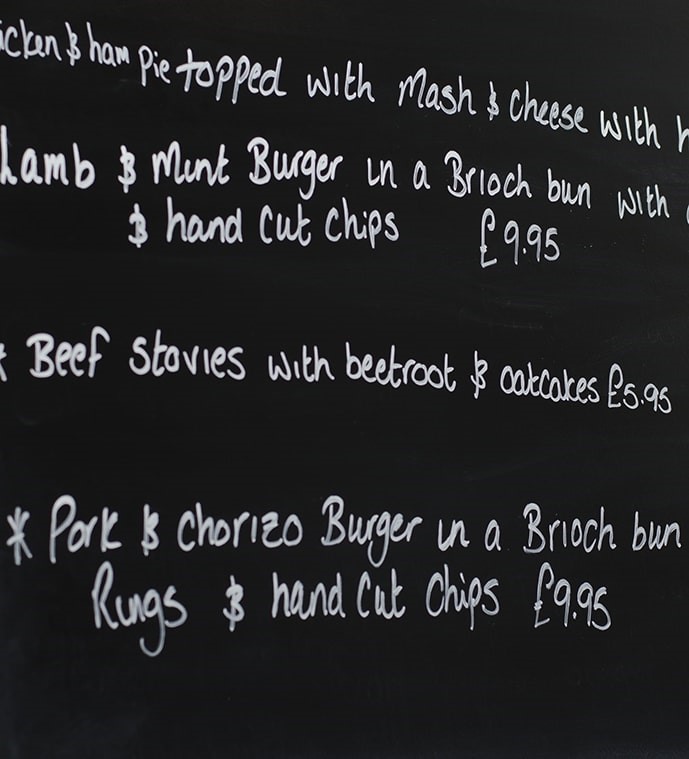 & ham Pie topped with Mash & Cheese with
Lamb & Mint Burger in a Brioch bun with
& hand Cut Chips £9.95
* Beef Stovies with beetroot & oatcakes £5.95
* Pork & Chorizo Burger in a Brioch bun
Rings & hand Cut Chips £9.95